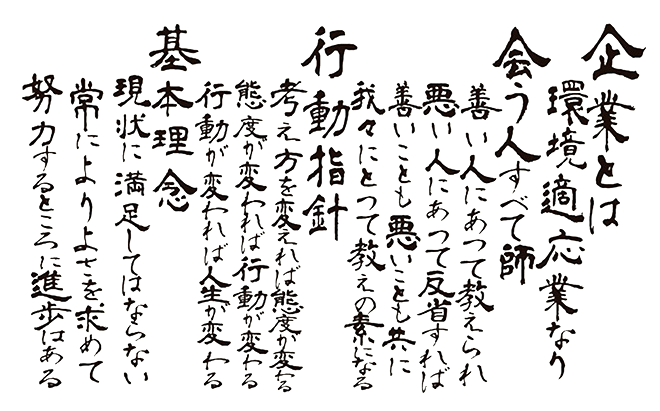 企業とは
環境適応業なり
会う人すべて師
善い人にあつて教えられ
悪い人にあつて反省すれば
善いことも悪いことも共に
我々にとつて教えの素になる
行動指針
考え方を変えれば態度が変る
態度が変われば行動が変わる
行動が変われば人生が変わる
基本理念
現状に満足してはならない
常によりよさを求めて
努力するところに進歩はある